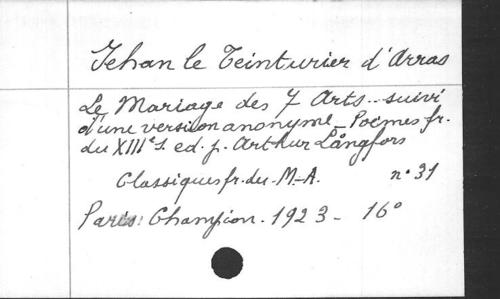 Jehan le Teinturier d'Arras
Le Mariage des 7 Arts.. suivi
d'une version anonyme _ Poèmes fr.
du XIIIe s ed. p. Arthur Långfors
Classiques fr. du. M.-A. n° 31
Paris: Champion. 1923 - 16°